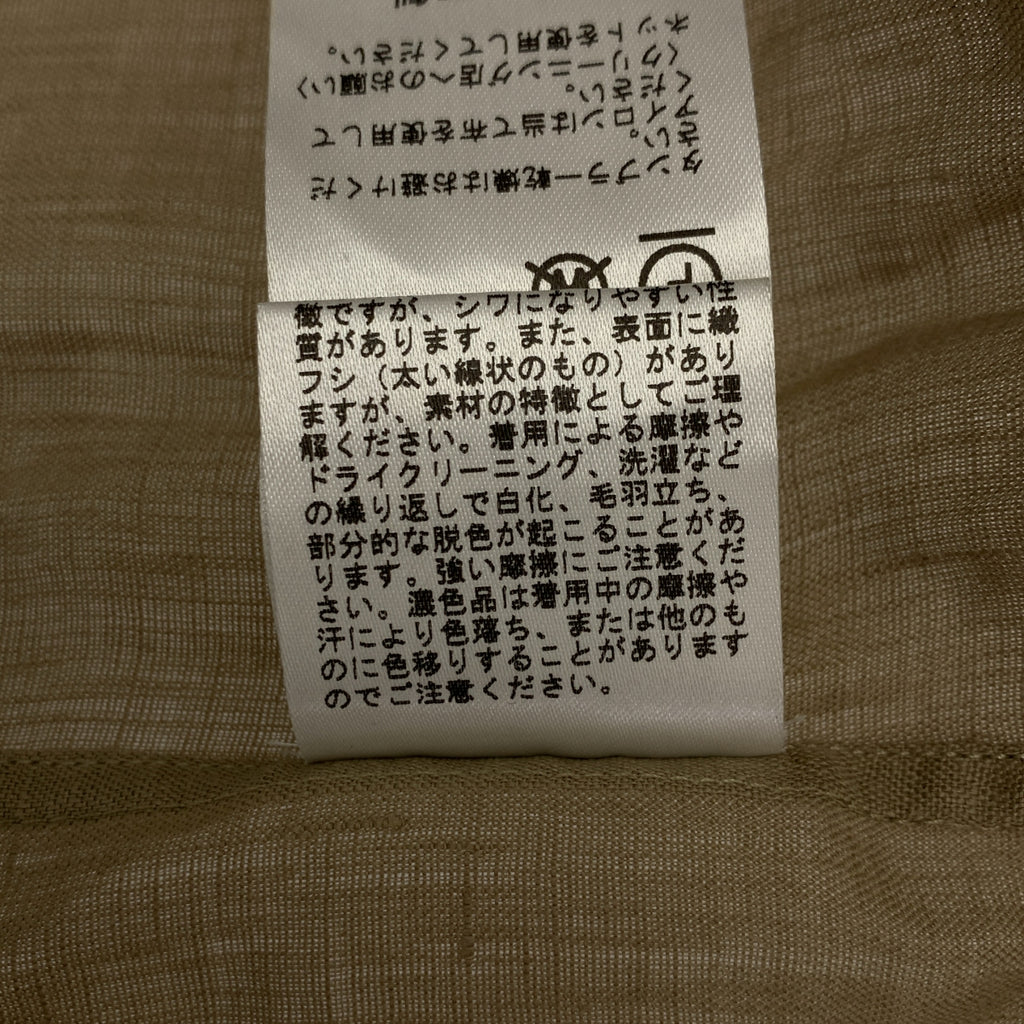 タンブラー乾燥はお避けくだ
さい。
アイロンは当て布を使用して
ください。
〈クリーニング店へのお願い〉
ネットを使用してください。
徴ですが、シワになりやすい性
質があります。また、表面に繊
フシ（太い線状のもの）があり
ますが、素材の特徴としてご理
解ください。着用による摩擦や
ドライクリーニング、洗濯など
の繰り返しで白化、毛羽立ち、
部分的な脱色が起こることがあ
ります。強い摩擦にご注意くだ
さい。濃色品は着用中の摩擦や
汗により色落ち、または他のも
のに色移りすることがあります
のでご注意ください。